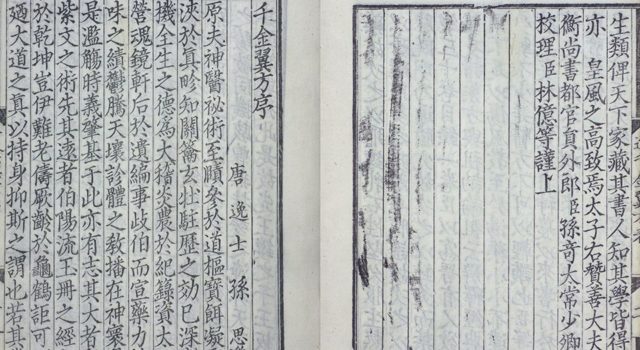 生類俾天下家藏其書人知其學皆得
亦 皇風之高致焉太子右贊善大夫
衡尚書都官員外郎臣孫奇太常少卿
校理臣林億等謹上
千金翼方序
唐逸士 孫 思
原夫神醫祕術至賾參於道樞寶餌凝
浹於眞畛知關籥玄牡駐歷之効已深
機全生之德爲大稽炎農於紀籙資太
營魂鏡軒后於遺編事歧伯而宣藥力
味之績鬱騰天壤診體之教播在神寰
是濫觴時義肇基于此亦有志其大者
紫文之術先其遠者伯陽流玉冊之經
於乾坤豈伊難老儔厥齡於龜鶴詎可
廼大道之眞以持身抑斯之謂也若其